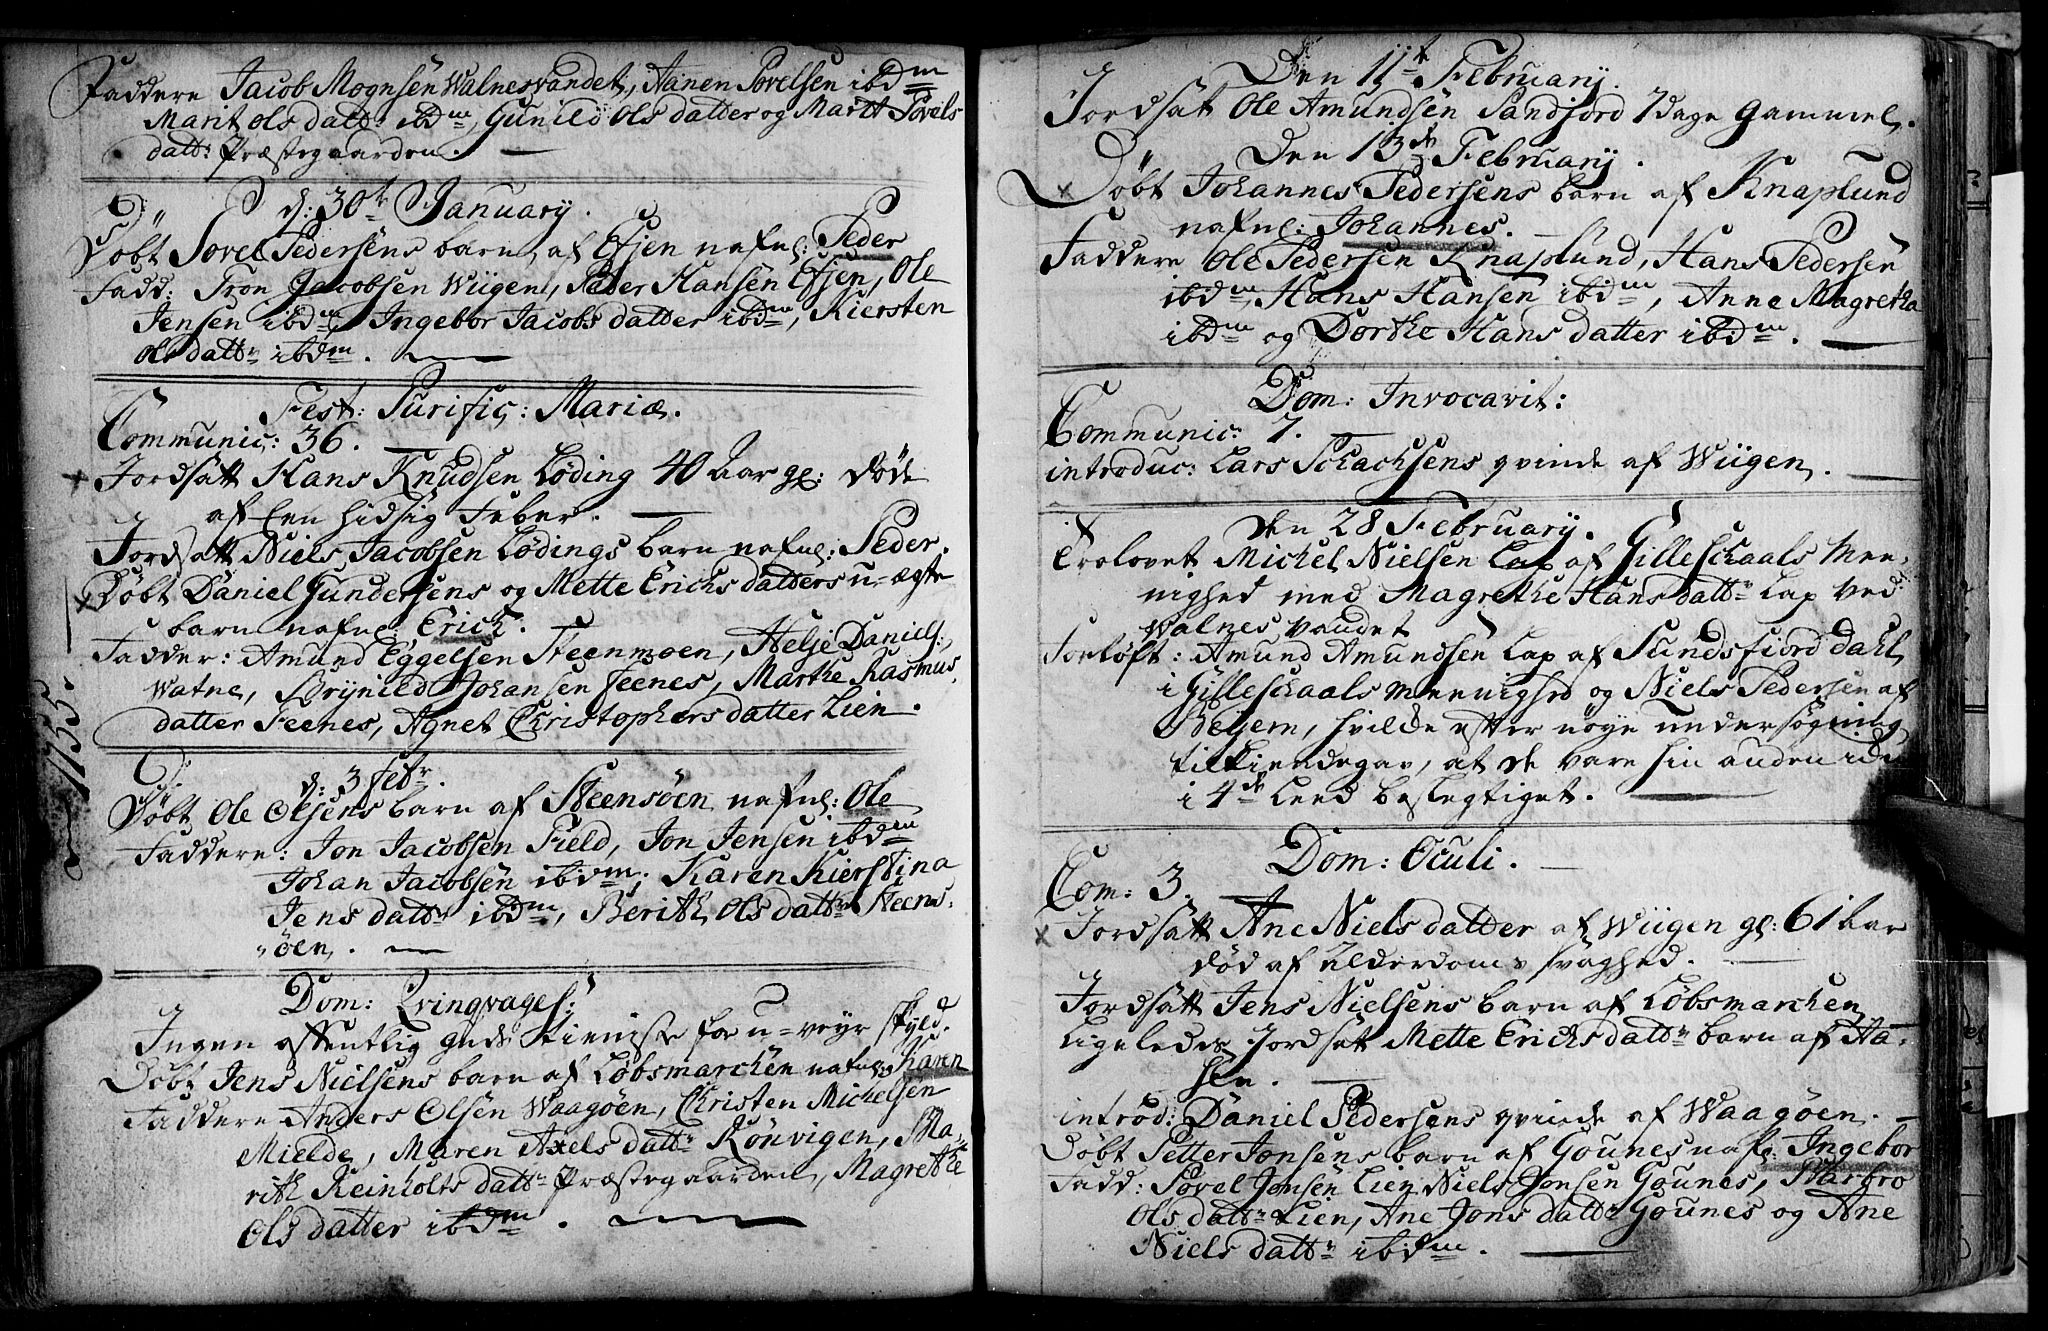 Faddere Jacob Mognsen Walnesvandet, Aanen Povelsen ibdm
Marit Ols datt: ibdm, Gunild Ols datter og Marit Povels
datt: Præstegaarden.
d: 30te January.
Döbt Povel Pedersens barn af Efjen nafnl: Peder
Fadd: Tron Jacobsen Wiigen, Peder Hansen Efjen, Ole
Jensen ibdm, Ingebor Jacobs datter ibdm, Kiersten
Ols datt: ibdm.
Fest: Purific: Mariæ.
Communic: 36.
Jordsatt Hans Knudsen Löding 40 Aar gl: döde
af een hidsig Feber.
Jordsatt Niels Jacobsen Lödings barn nafnl: Peder.
Döbt Daniel Gundersens og Mette Erichs datters u-ægte
barn nafnl: Erich.
Fadder: Amund Eggelsen Steenmoen, Helje Daniels:
Watne, Brynild Johansen Feenes, Marthe Rasmus
datter Feenes, Agnet Christophers datter Lien.
1755.
d: 3 Febr
Döbt Ole Olsens barn af Steensöen nafnl: Ole
Faddere: Jon Jacobsen Field, Jon Jensen ibdm
Johan Jacobsen ibdm, Karen Kierstina
Jens datt: ibdm, Berith Ols datt: Steens
öen.
Dom: Qvinqvages:
Ingen offentlig guds tieniste for u-veyr skyld.
Döbt Jens Nielsens barn af Löbsmarchen nafnl: Karen
Faddere Anders Olsen Waagöen, Christen Michelsen
Mielde, Maren Axels datt: Rönvigen, Ma-
rith Reinholts datt: Præstegaarden, Magrethe
Ols datter ibdm.
Den 11te February.
Jordsat Ole Amundsen Sandjord 7 dage Gammel.
Den 13de February.
Döbt Johannes Pedersens barn af Knaplund
nafnl: Johannes.
Faddere Ole Pedersen Knaplund, Hans Pedersen
ibdm, Hans Hansen ibdm, Anne Magretha
ibdm og Dorthe Hans datter ibdm.
Dom: Invocavit:
Communic: 7.
introduc: Lars Schachsens qvinde af Wiigen.
Den 28 February.
Trolovet Michel Nielsen Lap af Gilleschaals Men-
nighed med Magrethe Hans datt: Lap ved
Walnes vandet
Forlöft: Amund Amundsen Lap af Sundsfiord dahl
i Gilleschaals Mennighed og Niels Pedersen af
Beljern, hvilde efter nöye undersögning
tilkiendegav, at de vare hin anden ide
i 4de leed beslegtiget.
Dom: Oculi.
Com: 3.
Jordsatt Ane Niels datter af Wiigen gl: 61 aar
död af alderdoms svaghed.
Jordsatt Jens Nielsens barn af Löbsmarchen
Ligeledes Jordsat Mette Erichs datt: barn af Ha-
sen.
introd: Daniel Pedersens qvinde af Waagöen.
Döbt Petter Jonsens barn af Gounes nafl: Ingebor
Fadd: Povel Jonsen Lien, Niels Jonsen Gounes, Barbro
Ols datt: Lien, Ane Jons datt: Gounes og Ane
Niels datt: ibdm.